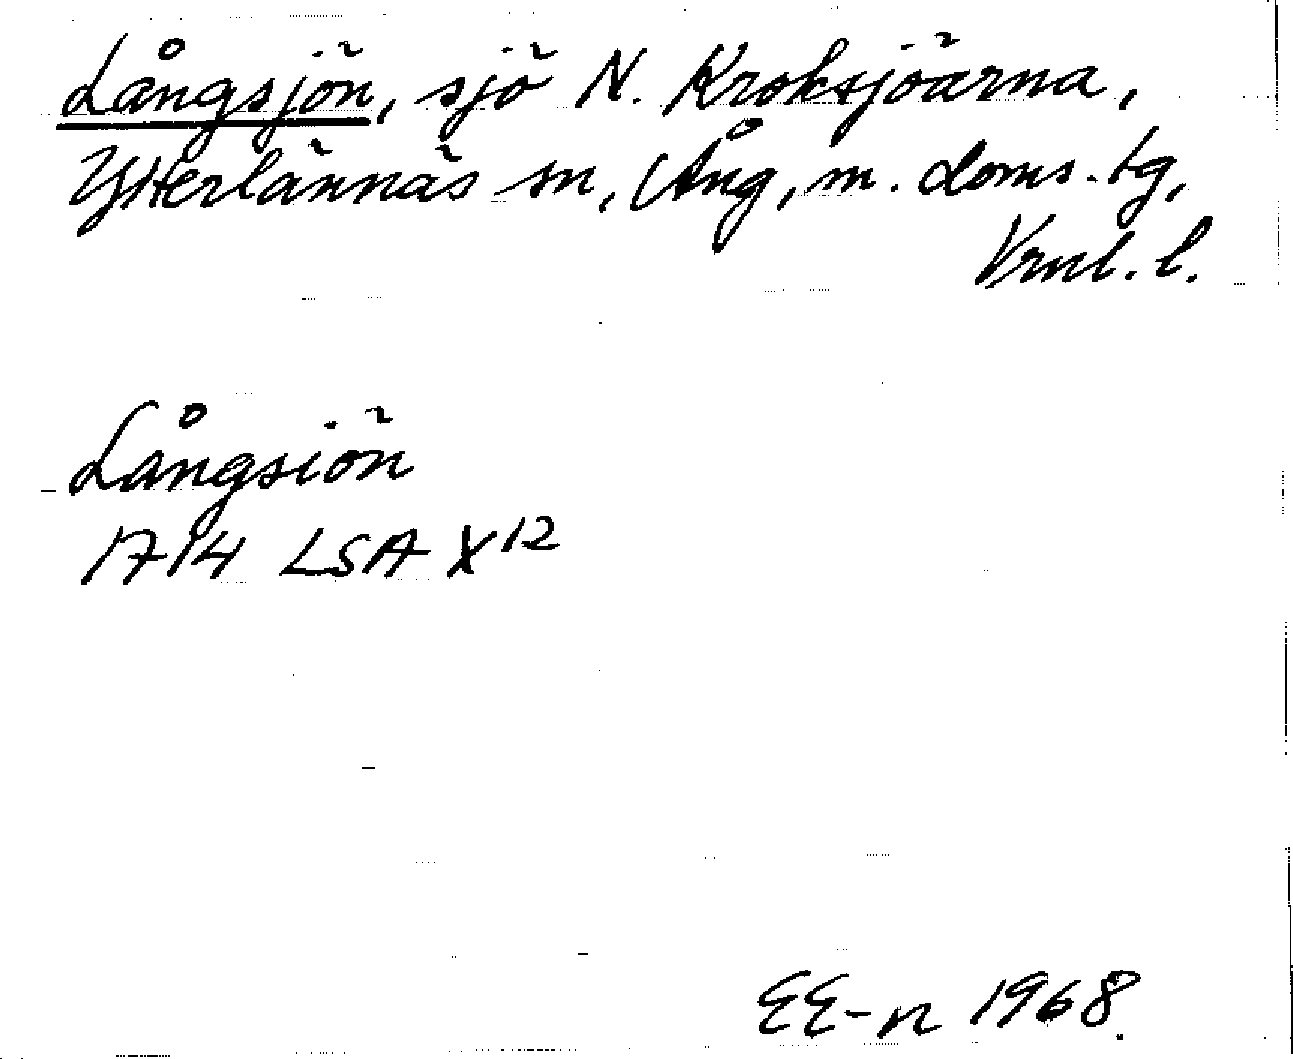 Långsjön, sjö N. Kroksjöärna,
Ytterlännäs sn, Ång, m. doms. tg,
Vrnl. l.
Långsiön
1714 LSA X12
EE-n 1968.